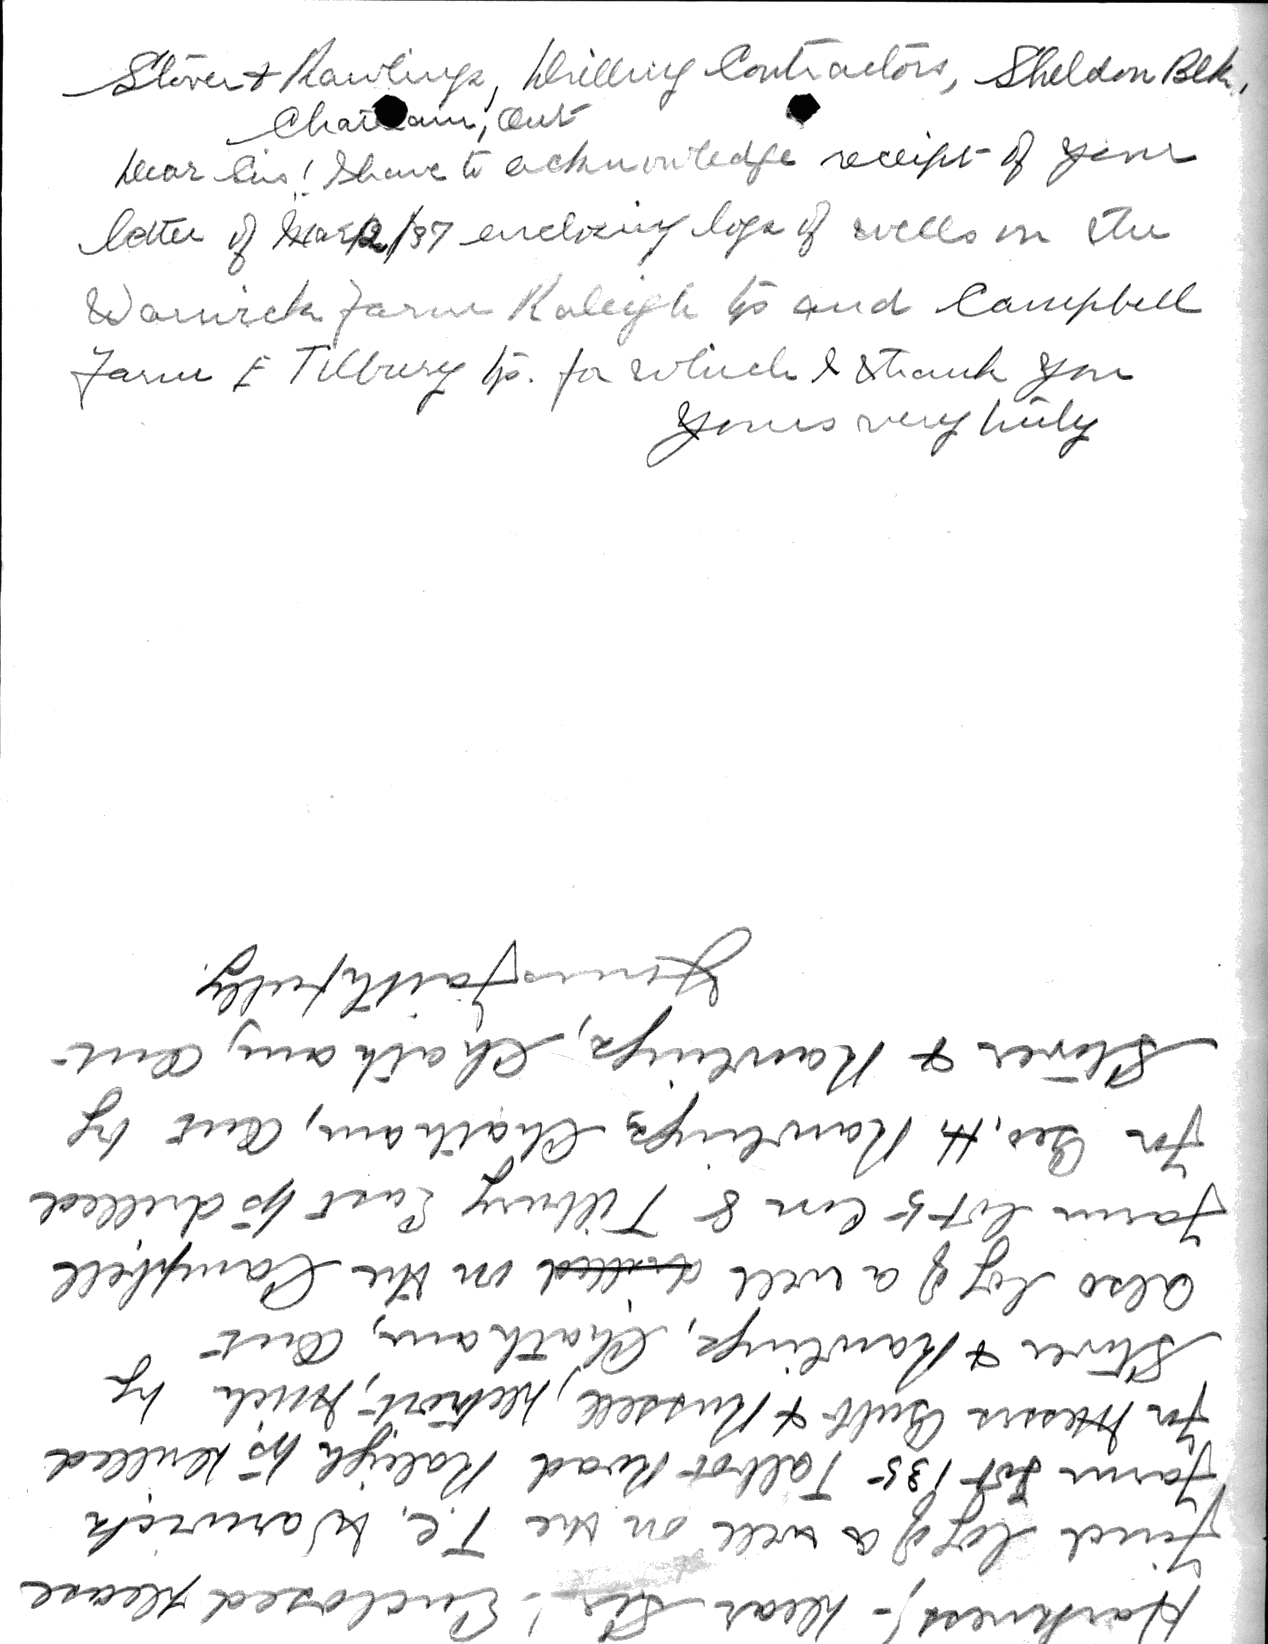 Stover & Rawlings, Drilling Contractors, Sheldon Blk,
Chatham, Ont
Dear Sirs! I have to acknowledge receipt of your
letter of Mar 12/37 enclosing logs of wells on the
Warwick Farm Raleigh tp and Campbell
Farm E Tilbury tp. for which I thank you
Yours very truly
Harkness,- Dear Sir! Enclosed please
find log of a well on the T.C. Warwick
farm Lot 135 Talbot Road Raleigh tp drilled
for Messrs Gulf & Russell, Detroit, Mich by
Stover & Rawlings, Chatham, Ont
also log of a well drilled on the Campbell
farm lot 5 Con 8 Tilbury East tp drilled
for Geo. H Rawlings Chatham, Ont by
Stover & Rawlings, Chatham, Ont
Yours faithfully.